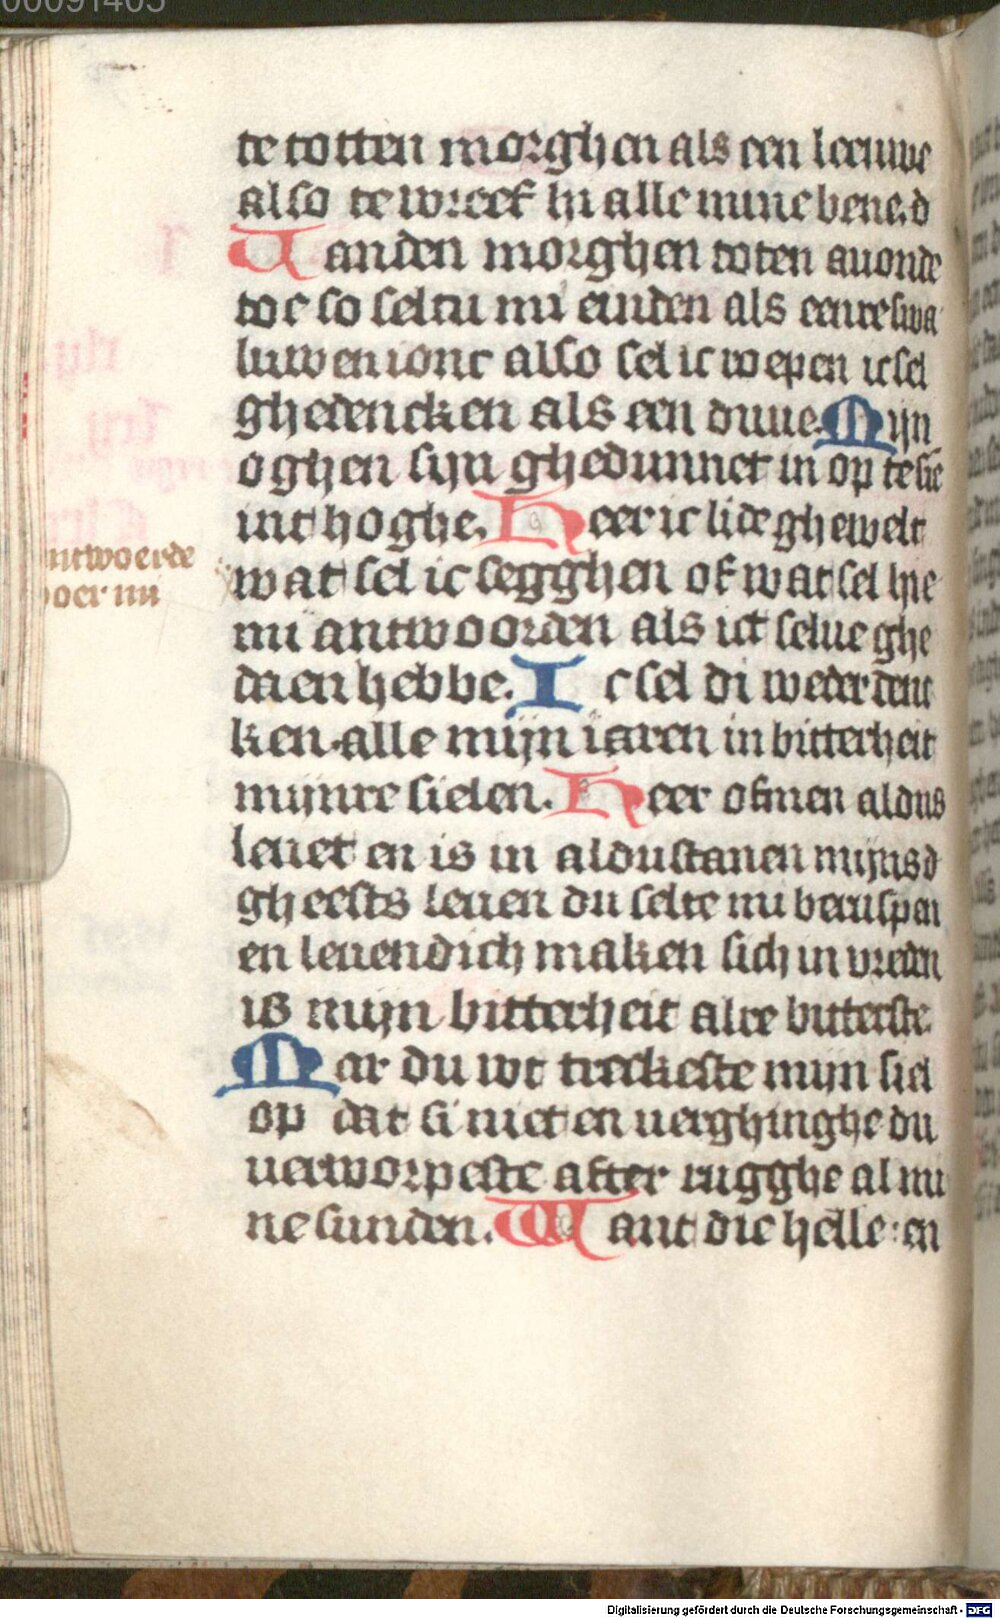 00091405
te totten morghen als een leeuwe
also te wreef hi alle mine bene. d
Uanden morghen toten auonde
toe so seltu mi einden als eenre swa
luwen ionc also sel ic roepen ic sel
ghedencken als een duue. Mijn
oghen sijn ghedunnet in op te sie
int hoghe. Heer ic lide ghewelt
antwoerde
voer mi
wat sel ic segghen of wat sel hie
mi antwoorden als ict selue ghe
daen hebbe. Ic sel di weder denc
ken alle mijn iaren in bitterheit
mijnre sielen. Heer ofmen aldus
leuet en is in aldustanen mijns d
gheests leuen du selte mi berispen
en leuendich maken sich in vreden
is mijn bitterheit alre bitterste
Mar du wt treckeste mijn siel
op dat si niet en uerghinghe du
uerworpeste after rugghe al mi
ne sunden. Want die helle: en
Digitalisierung gefördert durch die Deutsche Forschungsgemeinschaft - DFG